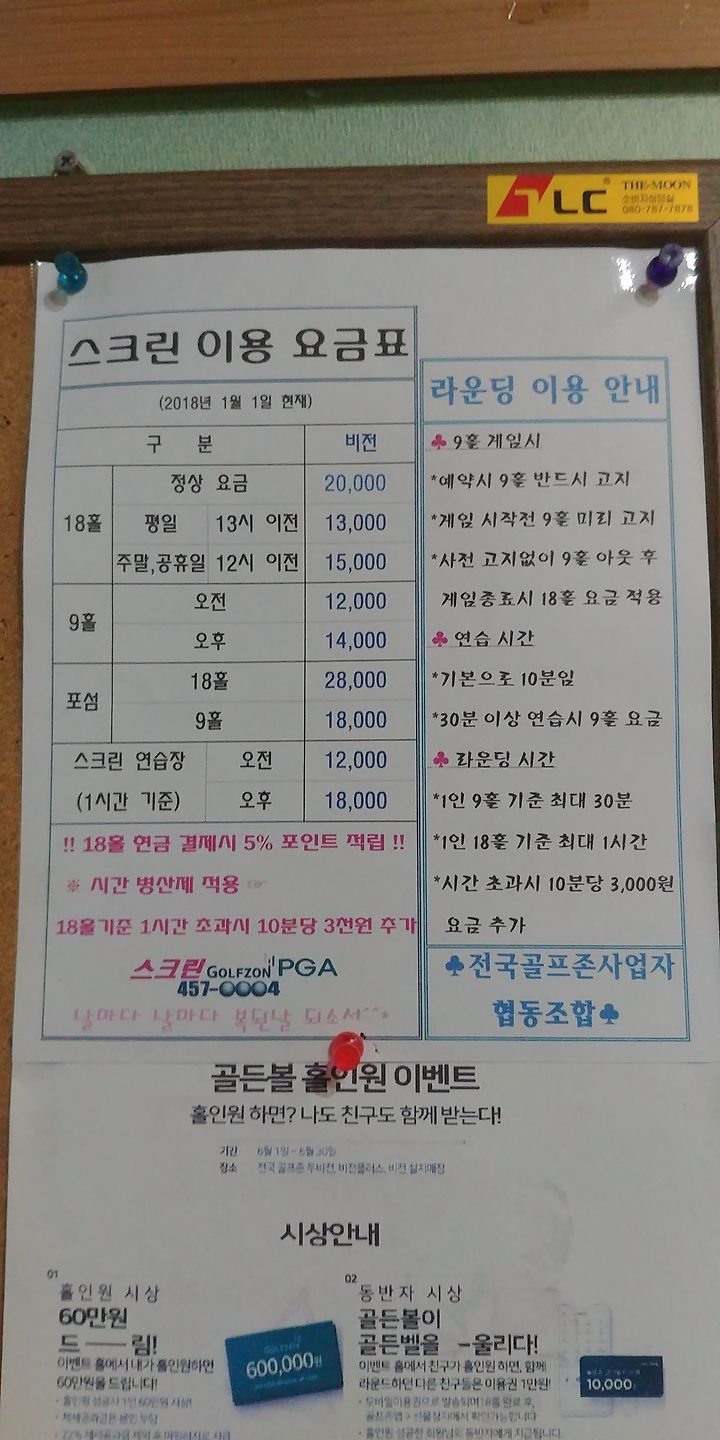 TLC
THE-MOON
소비자상담실
080-767-7878
스크린 이용 요금표
(2018년 1월 1일 현재)
구 분 비전
18홀 정상 요금 20,000
평일 13시 이전 13,000
주말,공휴일 12시 이전 15,000
9홀 오전 12,000
오후 14,000
포섬 18홀 28,000
9홀 18,000
스크린 연습장 오전 12,000
(1시간 기준) 오후 18,000
!! 18홀 현금 결제시 5% 포인트 적립 !!
※ 시간 병산제 적용 ☞
18홀기준 1시간 초과시 10분당 3천원 추가
스크린 GOLFZON PGA
457-0004
날마다 날마다 복된날 되소서^^*
라운딩 이용 안내
♣ 9홀 게임시
*예약시 9홀 반드시 고지
*게임 시작전 9홀 미리 고지
*사전 고지없이 9홀 아웃 후
게임종료시 18홀 요금 적용
♣ 연습 시간
*기본으로 10분임
*30분 이상 연습시 9홀 요금
♣ 라운딩 시간
*1인 9홀 기준 최대 30분
*1인 18홀 기준 최대 1시간
*시간 초과시 10분당 3,000원
요금 추가
♣전국골프존사업자
협동조합♣
골든볼 홀인원 이벤트
홀인원 하면? 나도 친구도 함께 받는다!
기간 6월 1일 ~ 6월 30일
장소 전국 골프존 투비전, 비전플러스, 비전 설치매장
시상안내
01
홀인원 시상
60만원
드 — 림!
이벤트 홀에서 내가 홀인원하면
60만원을 드립니다!
• 홀인원 성공자 1인 60만원 시상!
• 제세공과금은 본인 부담
600,000원
02
동반자 시상
골든볼이
골든벨을 -울리다!
이벤트 홀에서 친구가 홀인원 하면, 함께
라운드하던 다른 친구들은 이용권 1만원!
• 모바일이용권으로 발송되며 18홀 완료 후,
골프존앱 > 선물상자에서 확인가능합니다
• 홀인원 성공한 회원님의 동반자에게 지급됩니다.
10,000